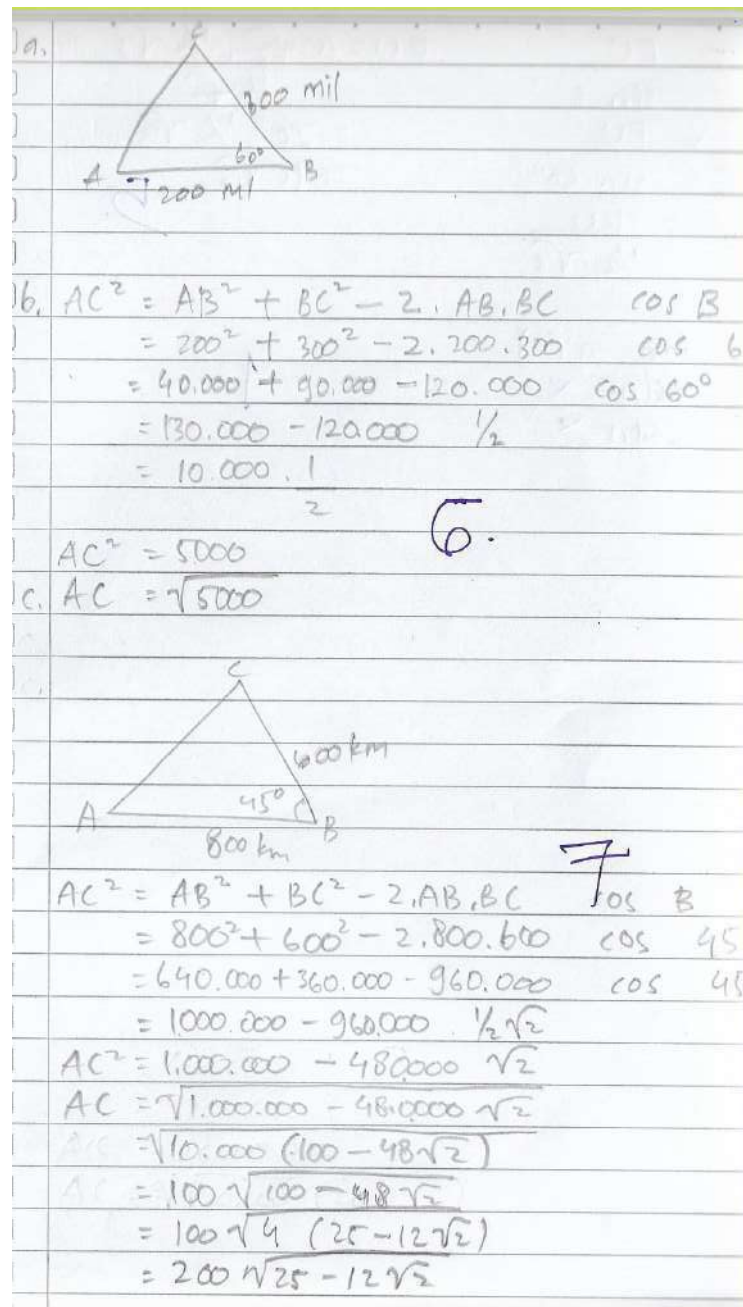 a.
C
300 mil
60°
A
B
200 Ml
b. AC² = AB² + BC² - 2. AB. BC cos B
= 200² + 300² - 2. 200.300 cos 6
= 40.000 + 90.000 - 120.000 cos 60°
= 130.000 - 120.000 1/2
= 10.000 . 1/2
6.
AC² = 5000
c. AC = √5000
C
600 km
45°
A
B
800 km
7
AC² = AB² + BC² - 2. AB. BC cos B
= 800² + 600² - 2.800.600 cos 45
= 640.000 + 360.000 - 960.000 cos 45
= 1000.000 - 960.000 1/2 √2
AC² = 1.000.000 - 480.000 √2
AC = √1.000.000 - 480.000 √2
= √10.000 (100 - 48√2)
= 100 √100 - 48 √2
= 100 √4 (25 - 12√2)
= 200 √25 - 12 √2